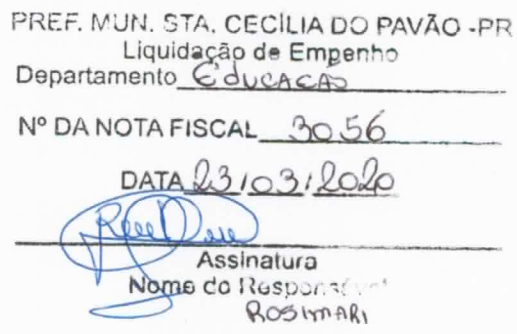 PREF. MUN. STA. CECÍLIA DO PAVÃO -PR
Liquidação de Empenho
Departamento EDUCAÇÃO
Nº DA NOTA FISCAL 3056
DATA 23/03/2020
Assinatura
Nome do Responsável
ROSIMARI